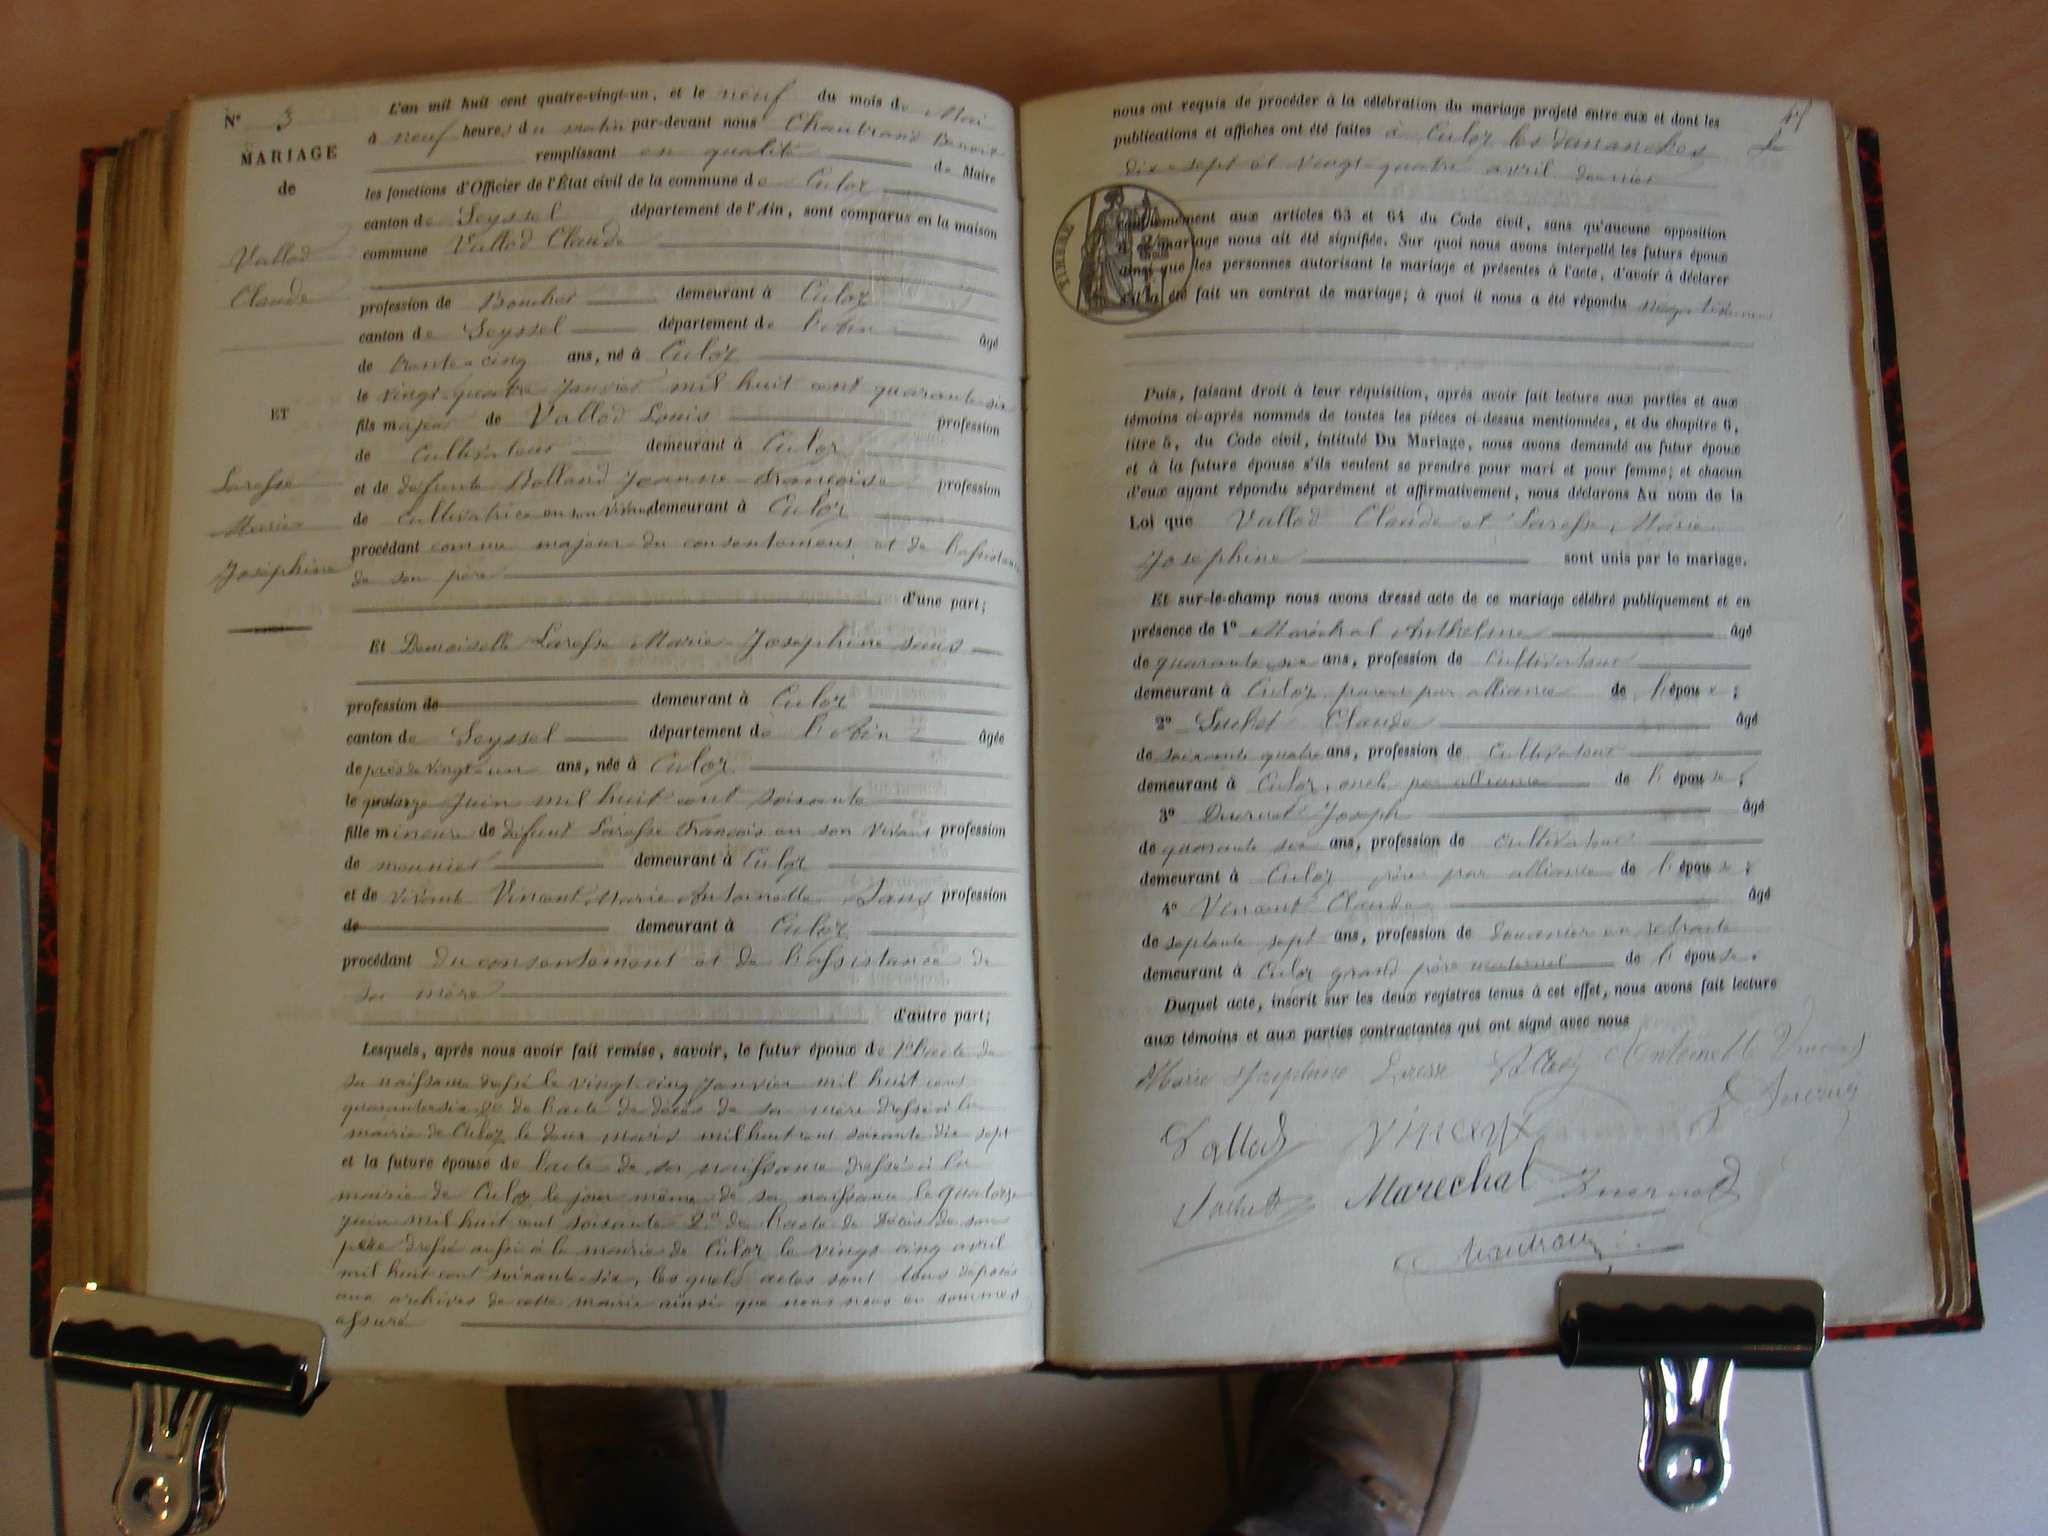 N° 3
MARIAGE
de
Vallod
Claude
ET
Laresse
Marie
Joséphine
L'an mil huit cent quatre-vingt-un, et le neuf du mois de Mai
à neuf heures du matin par-devant nous Chautrand Benoit
remplissant en qualité de Maire
les fonctions d'Officier de l'État civil de la commune de Culoz
canton de Seyssel département de l'Ain, sont comparus en la maison
commune Vallod Claude
profession de Boucher demeurant à Culoz
canton de Seyssel département de l'Ain âgé
de trente-cinq ans, né à Culoz
le vingt-quatre Janvier mil huit cent quarante-six
fils majeur de Vallod Louis profession
de Cultivateur demeurant à Culoz
et de défunte Balland Jeanne Françoise profession
de cultivatrice en son vivant demeurant à Culoz
procédant comme majeur du consentement et de l'assistance
de son père
d'une part;
Et Demoiselle Laresse Marie Joséphine sans
profession de demeurant à Culoz
canton de Seyssel département de l'Ain âgée
de près de vingt-un ans, née à Culoz
le quatorze Juin mil huit cent soixante
fille mineure de défunt Laresse François en son vivant profession
de meunier demeurant à Culoz
et de vivante Vincent Marie Antoinette Sans profession
de demeurant à Culoz
procédant du consentement et de l'assistance de
sa mère
d'autre part;
Lesquels, après nous avoir fait remise, savoir, le futur époux de 1° l'acte de
sa naissance dressé le vingt-cinq Janvier mil huit cent
quarante-six 2° de l'acte de décès de sa mère dressé à la
mairie de Culoz le deux mars mil huit cent soixante dix sept
et la future épouse de l'acte de sa naissance dressé à la
mairie de Culoz le jour même de sa naissance le quatorze
juin mil huit cent soixante 2° de l'acte de décès de son
père dressé aussi à la mairie de Culoz le vingt cinq avril
mil huit cent soixante-six, lesquels actes sont tous déposés
aux archives de cette mairie ainsi que nous nous en sommes
assuré
nous ont requis de procéder à la célébration du mariage projeté entre eux et dont les
publications et affiches ont été faites à Culoz les dimanches
dix-sept et vingt-quatre avril dernier
conformément aux articles 63 et 64 du Code civil, sans qu'aucune opposition
mariage nous ait été signifiée. Sur quoi nous avons interpellé les futurs époux
ainsi que les personnes autorisant le mariage et présentes à l'acte, d'avoir à déclarer
s'il a été fait un contrat de mariage; à quoi il nous a été répondu négativement
TIMBRE
Puis, faisant droit à leur réquisition, après avoir fait lecture aux parties et aux
témoins ci-après nommés de toutes les pièces ci-dessus mentionnées, et du chapitre 6,
titre 5, du Code civil, intitulé Du Mariage, nous avons demandé au futur époux
et à la future épouse s'ils veulent se prendre pour mari et pour femme; et chacun
d'eux ayant répondu séparément et affirmativement, nous déclarons Au nom de la
Loi que Vallod Claude et Laresse Marie
Joséphine sont unis par le mariage.
Et sur-le-champ nous avons dressé acte de ce mariage célébré publiquement et en
présence de 1° Maréchal Anthelme âgé
de quarante six ans, profession de Cultivateur
demeurant à Culoz parent par alliance de l'époux;
2° Suchet Claude âgé
de soixante quatre ans, profession de Cultivateur
demeurant à Culoz, oncle par alliance de l'épouse;
3° Ducruet Joseph âgé
de quarante six ans, profession de cultivateur
demeurant à Culoz père par alliance de l'épouse;
4° Vincent Claude âgé
de septante sept ans, profession de douanier en retraite
demeurant à Culoz grand père maternel de l'épouse.
Duquel acte, inscrit sur les deux registres tenus à cet effet, nous avons fait lecture
aux témoins et aux parties contractantes qui ont signé avec nous
Marie Josephine Laresse Vallod Antoinette Vincent
Vallod Vincent
Suchet Marechal Ducruet
Chautrand